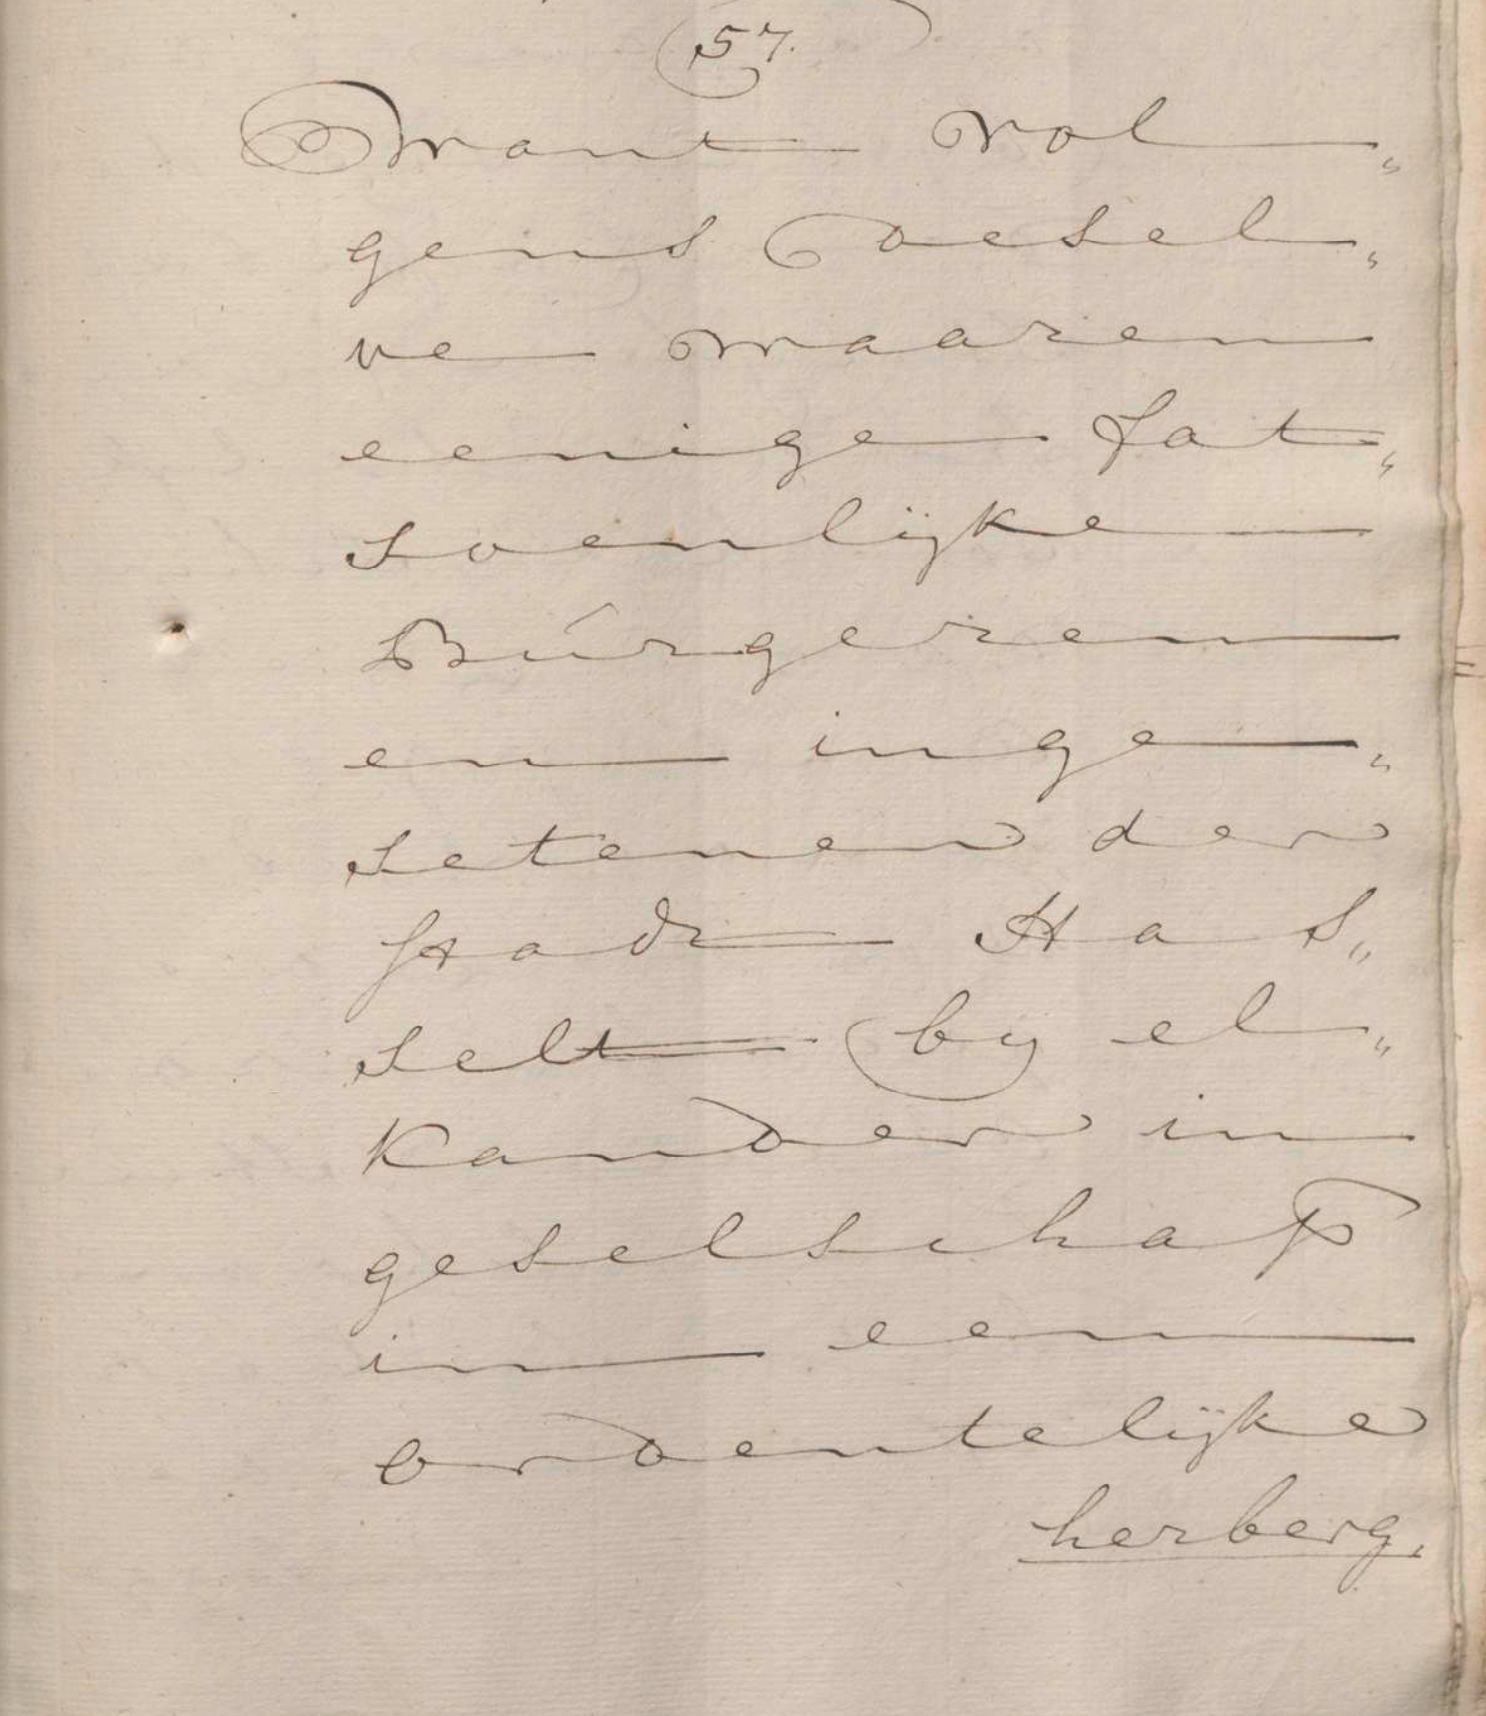 57.
want vol„
gens deSel„
ve waaren
eenige fat„
Soenlÿke
Búrgeren
en inge„
Setenen der
stadt HaS„
Selt by el„
Kander in
geselschap
in een
ordentelÿke
herberg.